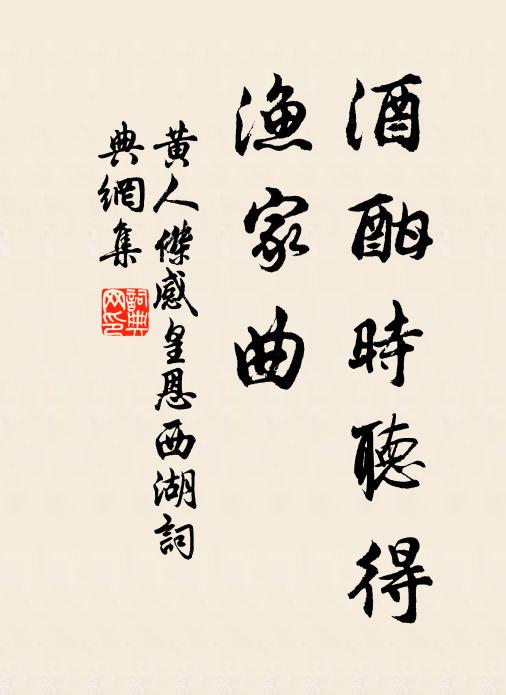 酒酣時聽得
漁家曲
黃人傑感皇恩西湖詞
典網集
詞典網印